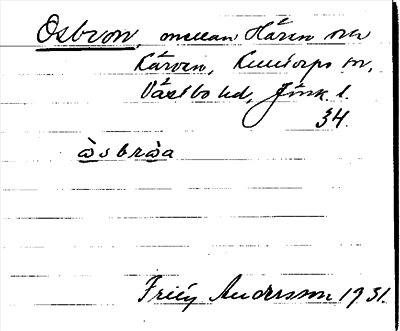 Osbron, mellan Håren och
Kärven, Kulltorps sn,
Västbo hd, Jönk. l.
34.
òsbròa
Frity Andersson 1931.